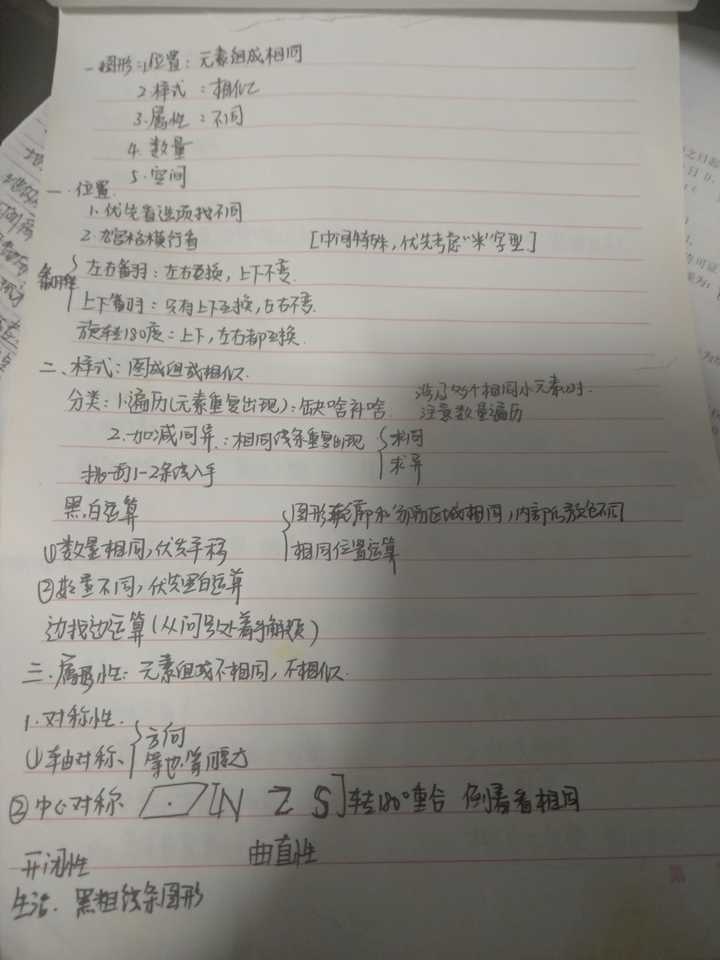 一 图形:1.位置:元素组成相同
2.样式:相似
3.属性:不同
4.数量
5.空间
一.位置
1.优先看选项找不同
2.九宫格横行看 [中间特殊,优先考虑“米”字型]
翻转 左右翻:左右互换,上下不变.
上下翻:只有上下互换,左右不变.
旋转180度:上下,左右都互换.
二、样式:图成组成相似.
分类:1.遍历(元素重复出现):缺啥补啥 个相同小元素时.
注意数量遍历
2.加减同异:相同线条重复出现 求同
求异
挑一两1-2条线入手
黑白运算 图形轮廓和分割区域相同,内部颜色不同
①数量相同,优先平移 相同位置运算
②数量不同,优先黑白运算
边找边运算(从问号处着手解题)
三.属性:元素组成不相同,不相似.
1.对称性.
①轴对称、 方向
等边.等腰
②中心对称 [N Z S]转180°重合 倒着看相同
开闭性 曲直性
生活. 黑粗线条图形
第